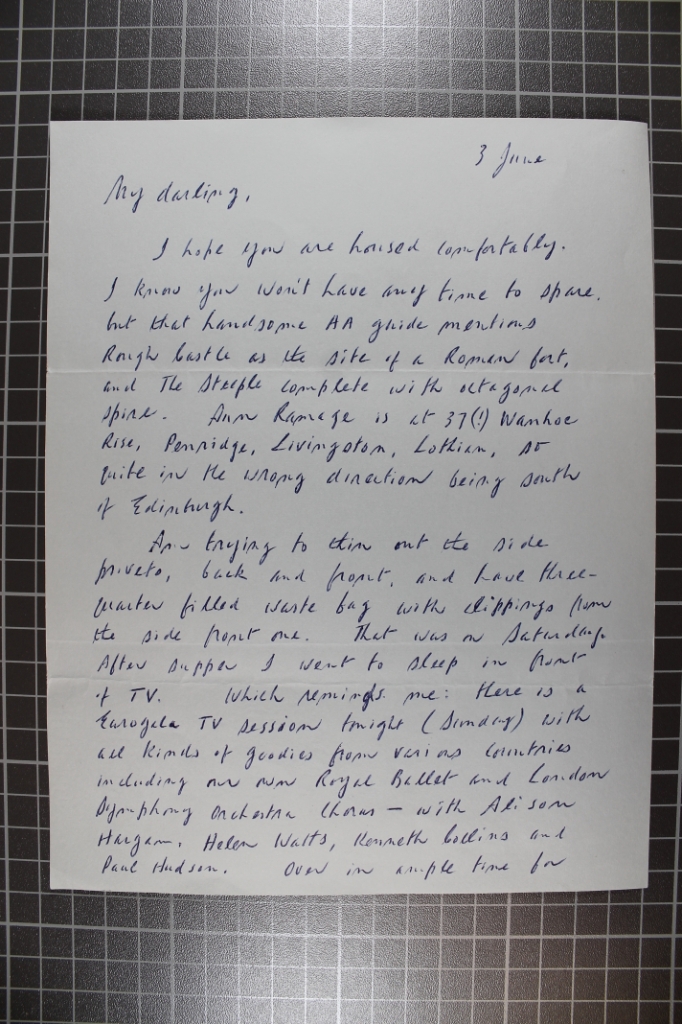 3 June
My darling,
I hope you are housed comfortably.
I know you won't have any time to spare,
but that handsome AA guide mentions
Rough Castle as the site of a Roman fort,
and The Steeple complete with octagonal
spire. Ann Ramage is at 37(!) Ivanhoe
Rise, Penridge, Livingston, Lothian, so
quite in the wrong direction being south
of Edinburgh.
Am trying to thin out the side
privets, back and front, and have three-
quarter filled waste bag with clippings from
the side front one. That was on Saturday.
After supper I went to sleep in front
of TV. Which reminds me: there is a
Eurogala TV session tonight (Sunday) with
all kinds of goodies from various countries
including our own Royal Ballet and London
Symphony Orchestra Chorus — with Alison
Hargan, Helen Watts, Kenneth Collins and
Paul Hudson. Over in ample time for